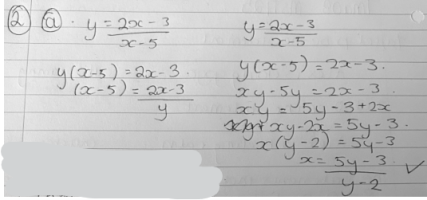 ② ⓐ. y = 2x - 3 / x - 5
y(x-5) = 2x - 3.
(x-5) = 2x-3 / y
y = 2x - 3 / x - 5
y(x-5) = 2x-3.
xy - 5y = 2x - 3
xy = 5y - 3 + 2x
xy - 2x = 5y - 3.
x(y-2) = 5y-3
x = 5y - 3. / y - 2 ✓